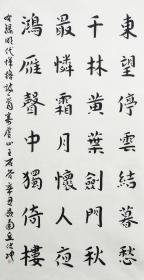 東望停雲結暮愁
千林黃葉劍門秋
最憐霜月懷人夜
鴻雁聲中獨倚樓